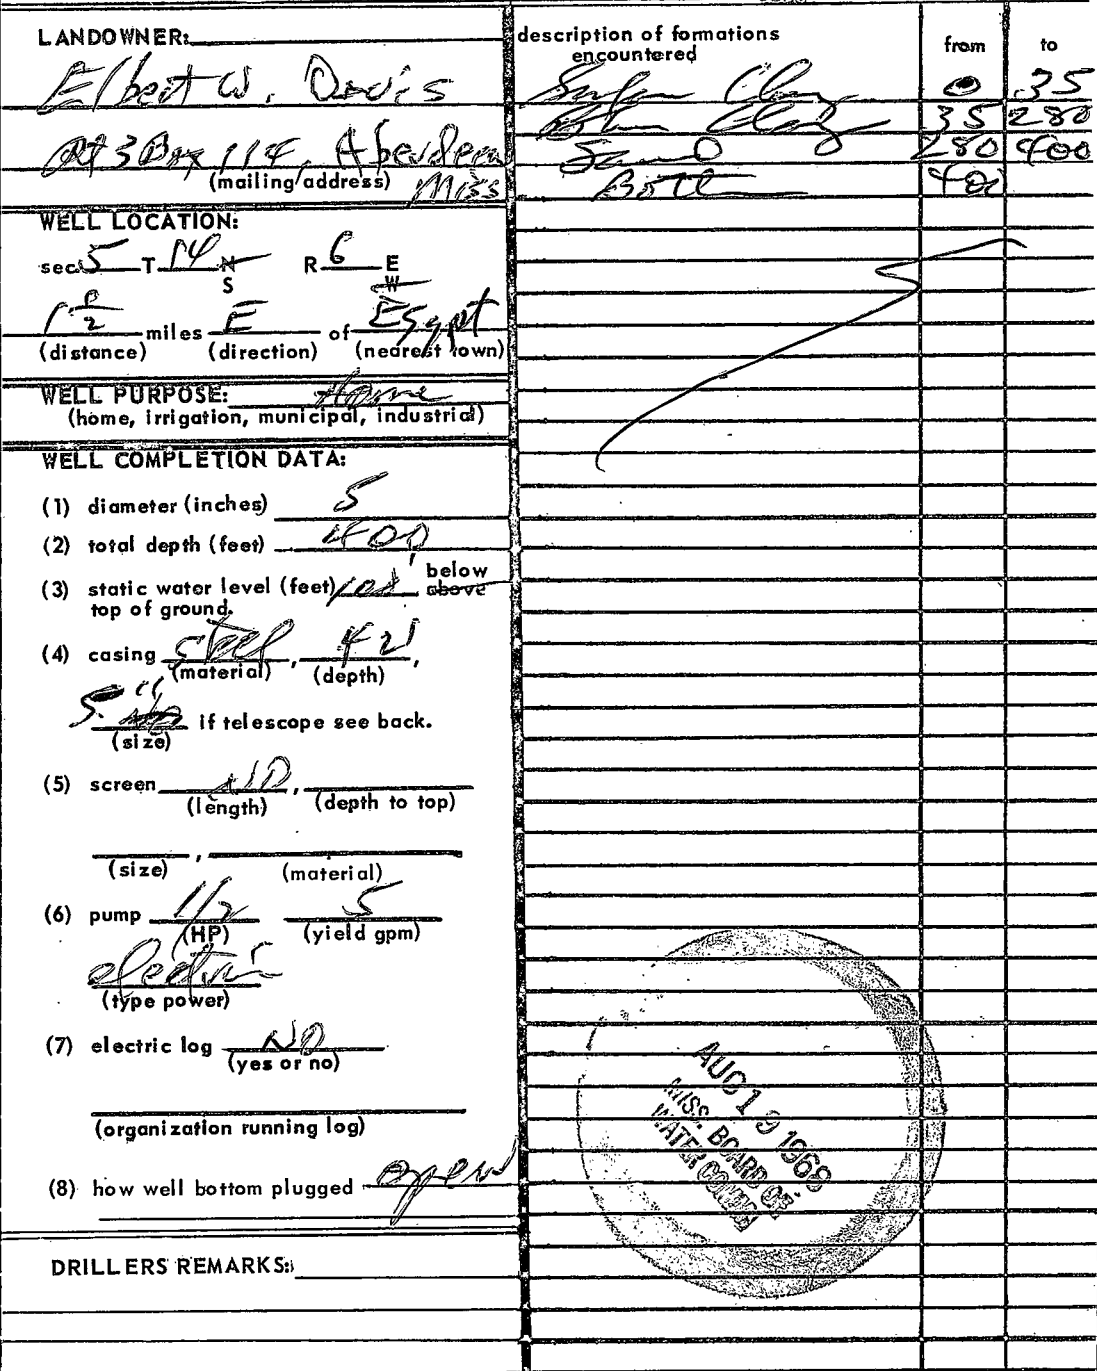 LANDOWNER:
Elbert W. Davis
Rt 3 Box 114, Aberdeen
(mailing address) Miss
WELL LOCATION:
sec 5 T 14 N R 6 E
S W
1 1/2 miles E of Egypt
(distance) (direction) (nearest town)
WELL PURPOSE: Home
(home, irrigation, municipal, industrial)
WELL COMPLETION DATA:
(1) diameter (inches) 5
(2) total depth (feet) 400
(3) static water level (feet) below
above
top of ground.
(4) casing steel, 42',
(material) (depth)
5" if telescope see back.
(size)
(5) screen NO,
(length) (depth to top)
,
(size) (material)
(6) pump 1/2 5
(HP) (yield gpm)
electric
(type power)
(7) electric log NO
(yes or no)
(organization running log)
(8) how well bottom plugged open
DRILLERS REMARKS:
description of formations
encountered
from to
Clay 0 35
35 280
Sand 280 400
Bottom 400
AUG 19 1968
MISS. BOARD OF
WATER